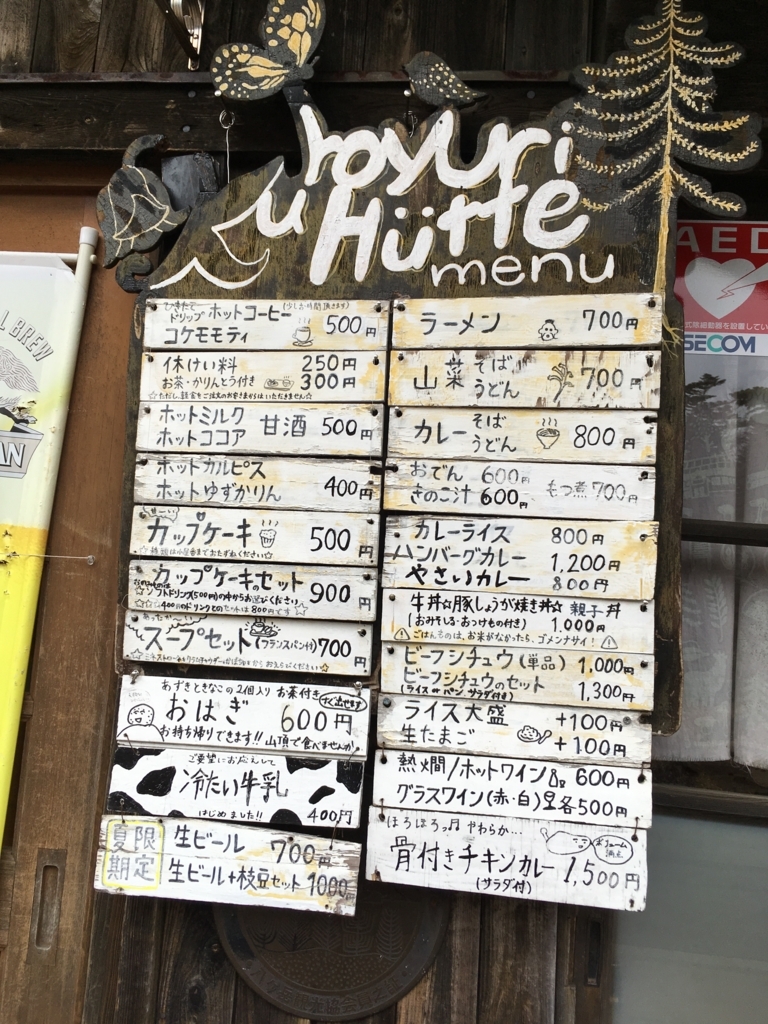 Kroyuri
Hütte
menu
ひきたてドリップ ホットコーヒー (少しお時間頂きます)
コケモモティ 500円
休けい料 250円
お茶・かりんとう付き 300円
ホットミルク
ホットココア 甘酒 500円
ホットカルピス
ホットゆずかりん 400円
カップケーキ 500円
カップケーキのセット 900円
ソフトドリンク(500円)の中からお選びください
スープセット (フランスパン付) 700円
あずきときなこの2個入り お茶付き すぐ出せます
おはぎ 600円
お持ち帰りできます!! 山頂で食べませんか
ご要望にお応えして
冷たい牛乳
はじめました!! 400円
夏限
期定
生ビール 700円
生ビール+枝豆セット 1000円
ラーメン 700円
山菜 そば
うどん 700円
カレー そば
うどん 800円
おでん 600円
きのこ汁 600円 もつ煮 700円
カレーライス 800円
ハンバーグカレー 1,200円
やさいカレー 800円
牛丼☆豚しょうが焼き丼☆親子丼
(おみそしる・おつけもの付き) 1,000円
ごはんものは、お米がなかったら、ゴメンナサイ!
ビーフシチュウ(単品) 1,000円
ビーフシチュウのセット 1,300円
(ライス or パン サラダ付き)
ライス大盛 +100円
生たまご +100円
熱燗/ホットワイン 600円
グラスワイン(赤・白) 各500円
ほろほろっ やわらか…
ボリューム満点
骨付きチキンカレー 1,500円
(サラダ付)
AED
SECOM
L BREW
AN